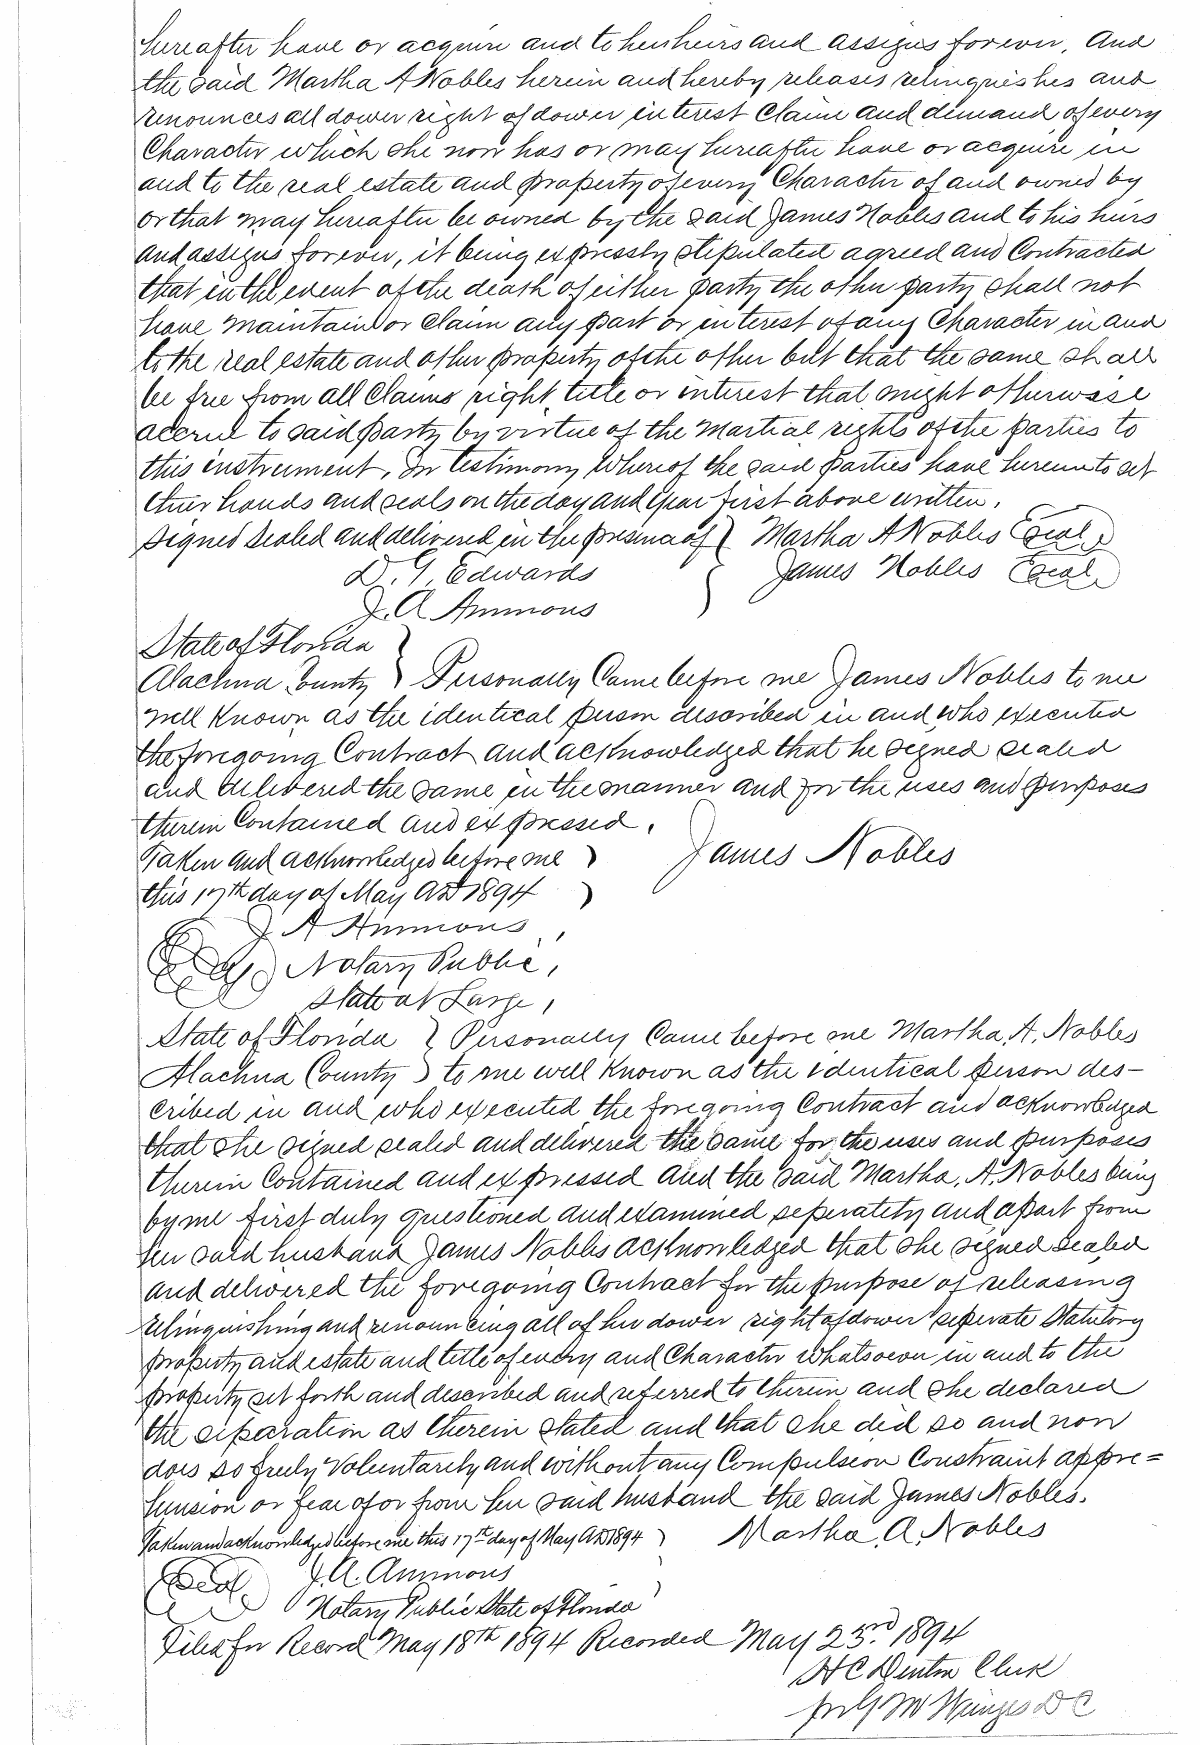 hereafter have or acquire and to her heirs and assigns forever. And
the said Martha A Nobles herein and hereby releases relinquishes and
renounces all dower right of dower interest Claim and demand of every
Character which she now has or may hereafter have or acquire in
and to the real estate and property of every Character of and owned by
or that may hereafter be owned by the said James Nobles and to his heirs
and assigns forever, it being expressly stipulated agreed and Contracted
that in the event of the death of either party the other party shall not
have maintain or claim any part or interest of any Character in and
to the real estate and other property of the other but that the same shall
be free from all Claims right title or interest that might otherwise
accrue to said party by virtue of the Martial rights of the parties to
this instrument. In testimony Whereof the said parties have hereunto set
their hands and seals on the day and year first above written.
Signed Sealed and delivered in the presence of } Martha A Nobles Seal
D. G. Edwards James Nobles Seal
J. A Ammons
State of Florida
Alachua County } Personally Came before me James Nobles to me
well Known as the identical person described in and who executed
the foregoing Contract and acknowledged that he signed sealed
and delivered the same in the manner and for the uses and purposes
therein Contained and expressed.
Taken and acknowledged before me ) James Nobles
this 17th day of May AD 1894 )
J A Ammons,
Seal Notary Public,
State at Large,
State of Florida } Personally Came before me Martha, A. Nobles
Alachua County ) to me well Known as the identical person des-
cribed in and who executed the foregoing Contract and acknowledged
that she signed sealed and delivered the same for the uses and purposes
therein Contained and expressed and the said Martha, A. Nobles being
by me first duly questioned and examined seperately and apart from
her said husband James Nobles acknowledged that she signed sealed
and delivered the foregoing Contract for the purpose of releasing
relinquishing and renouncing all of her dower right of dower seperate Statutory
property and estate and title of every and Character whatsoever in and to the
property set forth and described and referred to therein and she declared
the separation as therein Stated and that she did so and now
does so freely Voluntarily and without any Compulsion Constraint appre=
hension or fear of or from her said husband the said James Nobles.
Taken and acknowledged before me this 17th day of May AD 1894 ) Martha, A. Nobles
Seal J. A. Ammons
Notary Public State of Florida
Filed for Record May 18th 1894 Recorded May 23rd 1894
H C Denton Clerk
D C